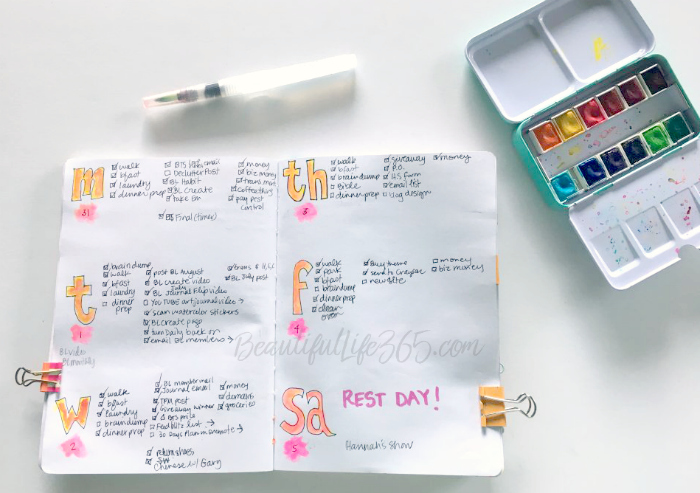 m
31
walk
bfast
laundry
dinner prep
Declutter Post
BL Habit
BL create
Final (timer)
money
biz money
trans mort
pay pest
control
t
1
BL video
BL monthly
brain dump
walk
bfast
laundry
dinner
prep
post BL August
BL create video
BL Journal flip video
You Tube art journal video →
scan watercolor stickers
BL create prep
turn Daily back on
email BL members →
BL July post
w
2
walk
bfast
laundry
braindump
dinner prep
BL member mail
Journal email
TPM post
Giveaway winner
Food Blitz list →
30 Days Plan
return shoes
Chenese w/ Gary
money
groceries
th
3
walk
bfast
braindump
Bible
dinner prep
giveaway
P.O.
email 1st
Log design
money
f
4
walk
bfast
braindump
dinner prep
clean
oven
Buy theme
new site
money
biz money
sa
5
REST DAY!
Hannah's show
BeautifulLife365.com